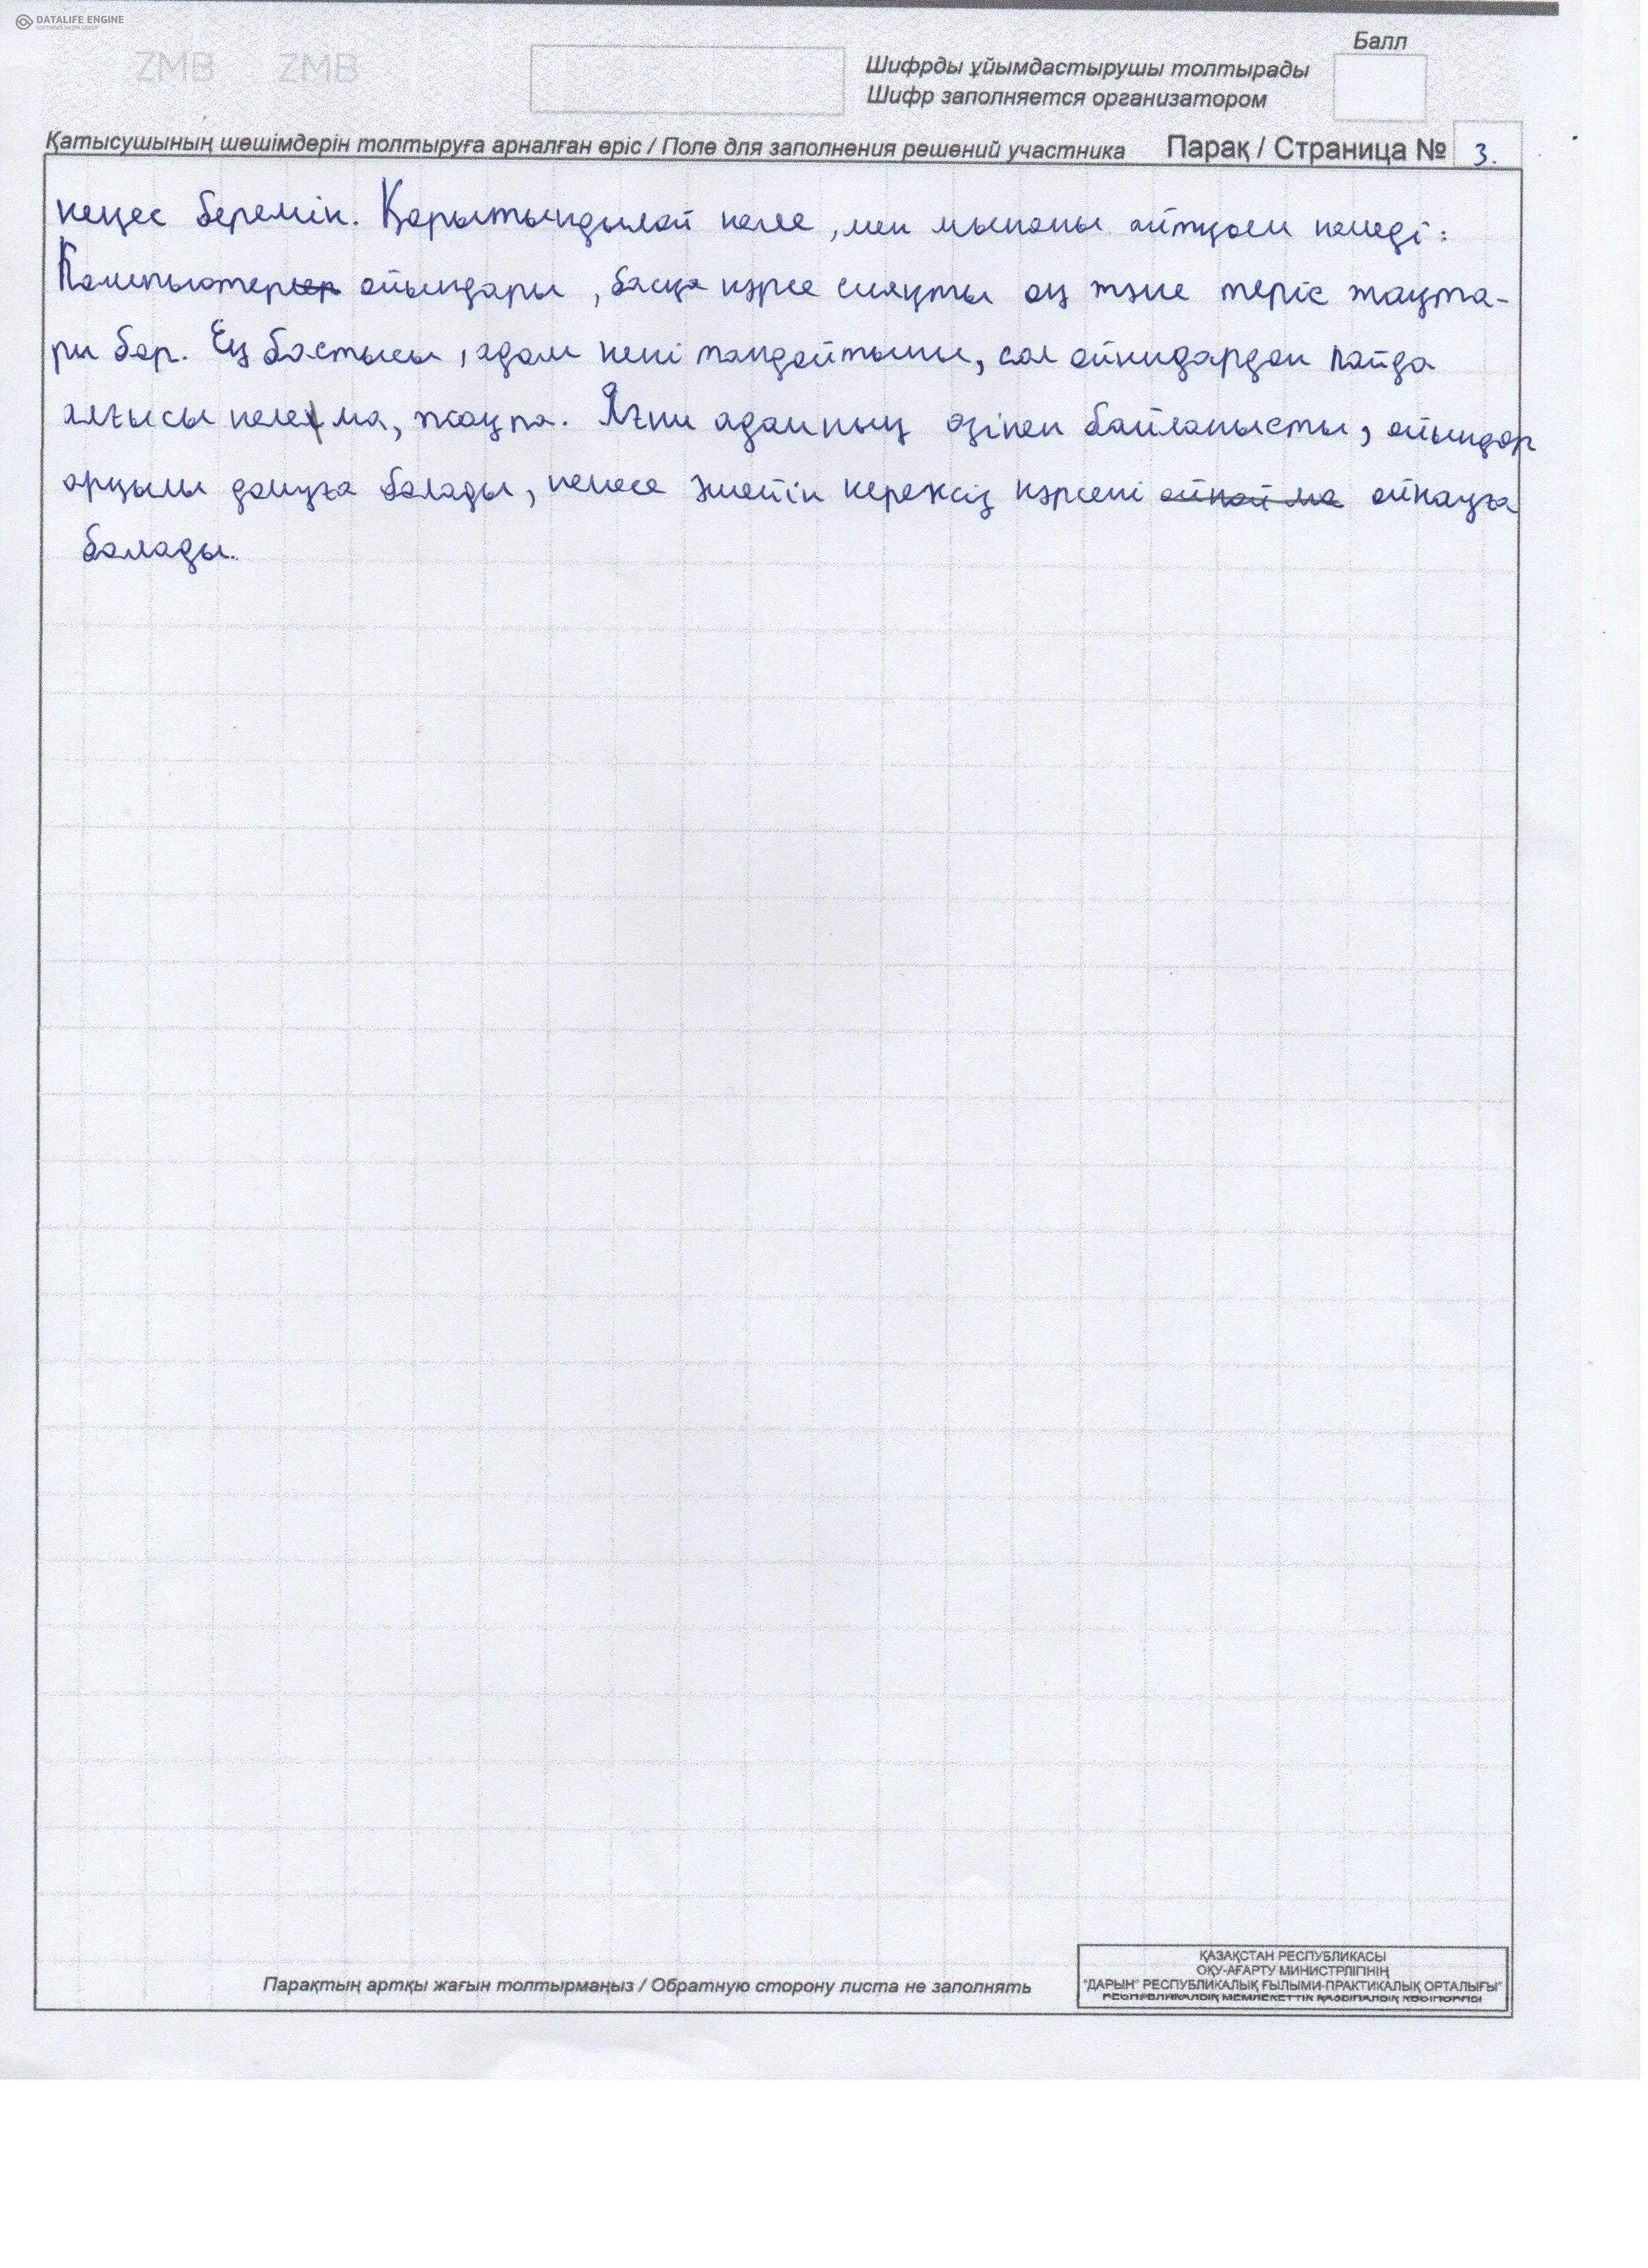 DATALIFE ENGINE
SOFTNEWS MEDIA GROUP
ZMB ZMB
Балл
Шифрды ұйымдастырушы толтырады
Шифр заполняется организатором
Қатысушының шешімдерін толтыруға арналған өріс / Поле для заполнения решений участника Парақ / Страница № 3.
кеңес беремін. Қорытындылай келе, мен мынаны айтқым келеді:
Компьютерлер ойындары, басқа нәрсе сияқты оң және теріс жақта-
ры бар. Ең бастысы, адам нені таңдайтыны, сол ойындардан пайда
алғысы келе ма, жоқ па. Яғни адамның өзінен байланысты, ойындар
арқылы дамуға болады, немесе әшейін керексіз нәрсені ойнай ма ойнауға
болады.
Парақтың артқы жағын толтырмаңыз / Обратную сторону листа не заполнять
ҚАЗАҚСТАН РЕСПУБЛИКАСЫ
ОҚУ-АҒАРТУ МИНИСТРЛІГІНІҢ
"ДАРЫН" РЕСПУБЛИКАЛЫҚ ҒЫЛЫМИ-ПРАКТИКАЛЫҚ ОРТАЛЫҒЫ"
РЕСПУБЛИКАЛЫҚ МЕМЛЕКЕТТІК ҚАЗЫНАЛЫҚ КӘСІПОРНЫ